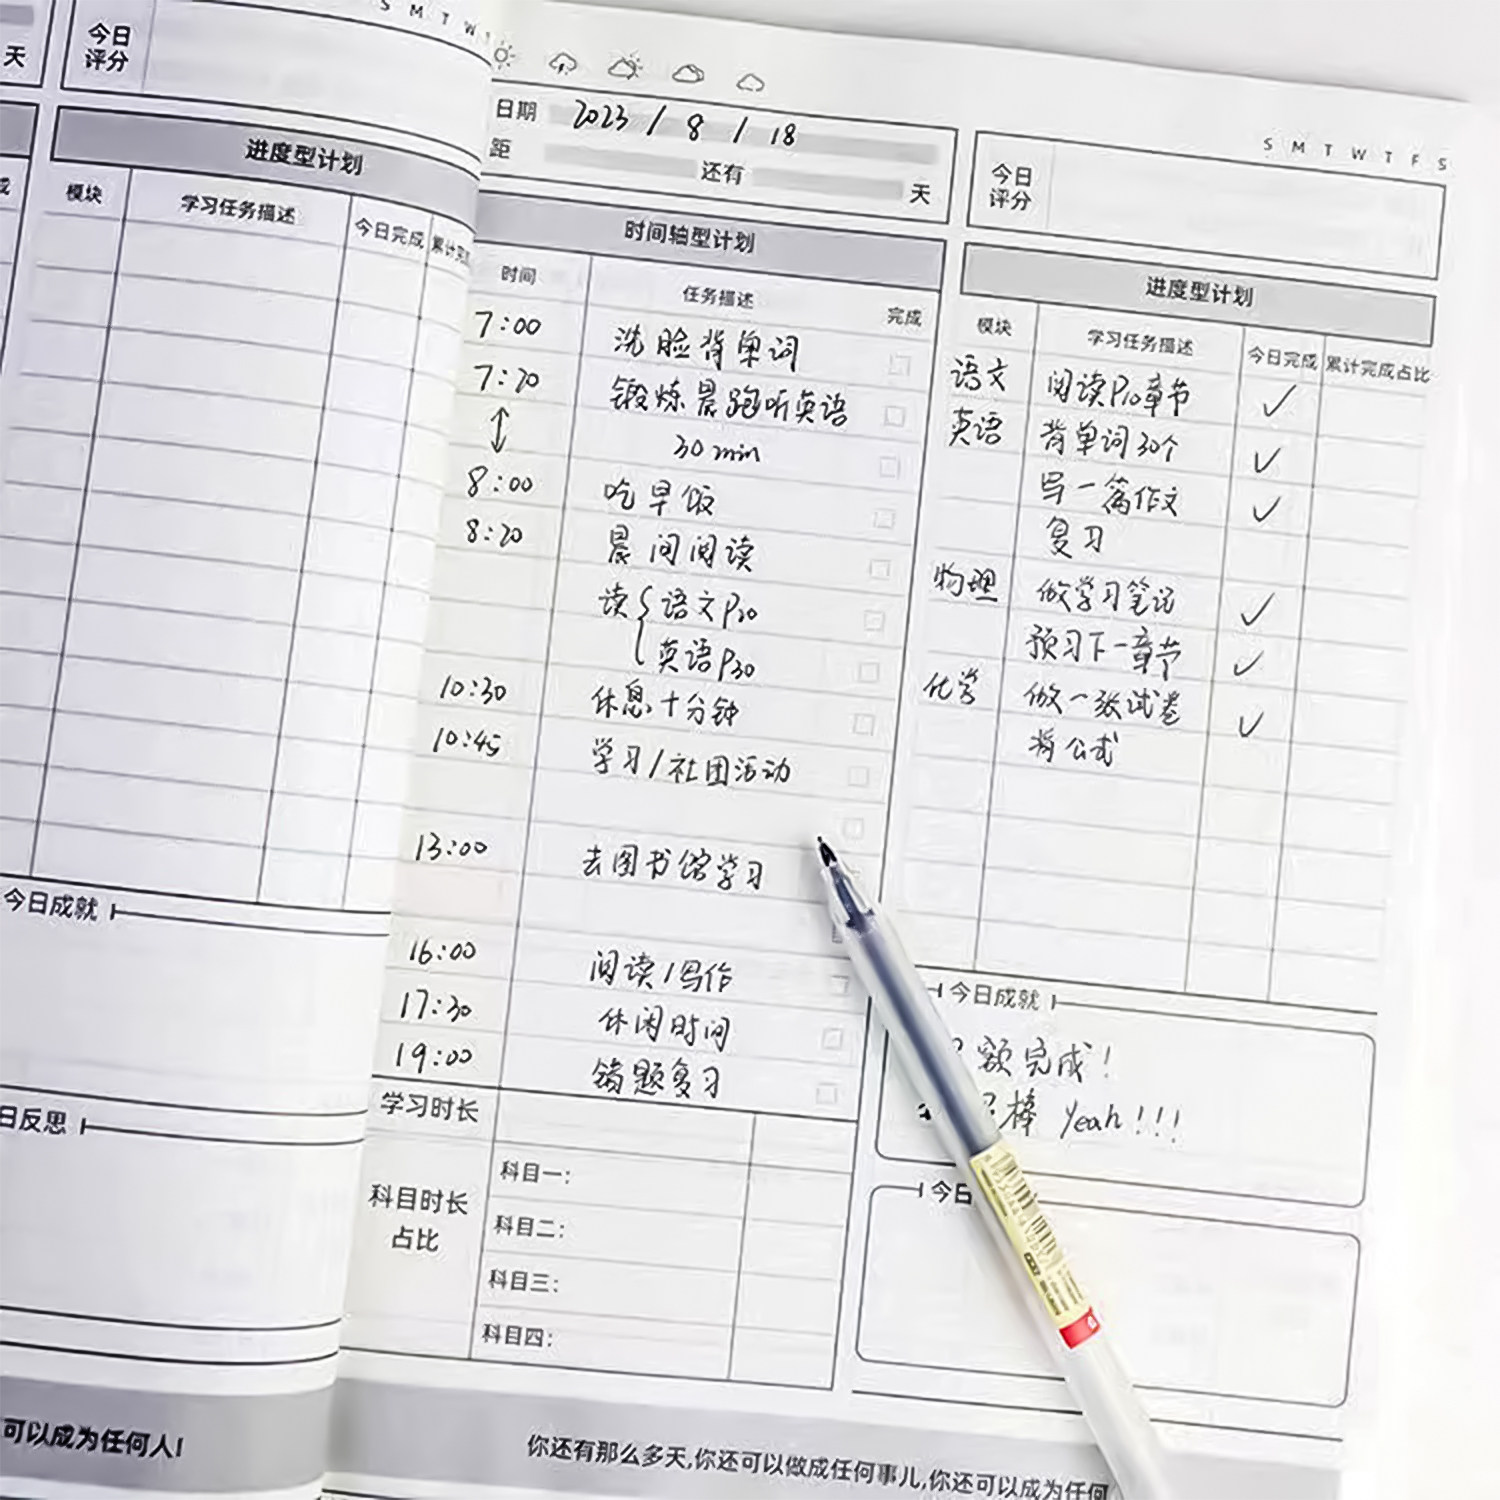 天
今日
评分
进度型计划
模块 学习任务描述 今日完成 累计完
今日成就
日反思
可以成为任何人!
S M T W T
日期 2023 / 8 / 18
距 还有 天
S M T W T F S
今日
评分
时间轴型计划
时间 任务描述 完成
7:00 洗脸背单词
7:20 锻炼晨跑听英语
30min
8:00 吃早饭
8:20 晨间阅读
读 语文P20
英语P30
10:30 休息十分钟
10:45 学习/社团活动
13:00 去图书馆学习
16:00 阅读/写作
17:30 休闲时间
19:00 错题复习
学习时长
科目时长
占比
科目一:
科目二:
科目三:
科目四:
进度型计划
模块 学习任务描述 今日完成 累计完成占比
语文 阅读P10章节 ✓
英语 背单词30个 ✓
写一篇作文 ✓
复习
物理 做学习笔记 ✓
预习下一章节 ✓
化学 做一张试卷 ✓
背公式
今日成就
额完成!
棒 Yeah!!!
今日
你还有那么多天,你还可以做成任何事儿,你还可以成为任何